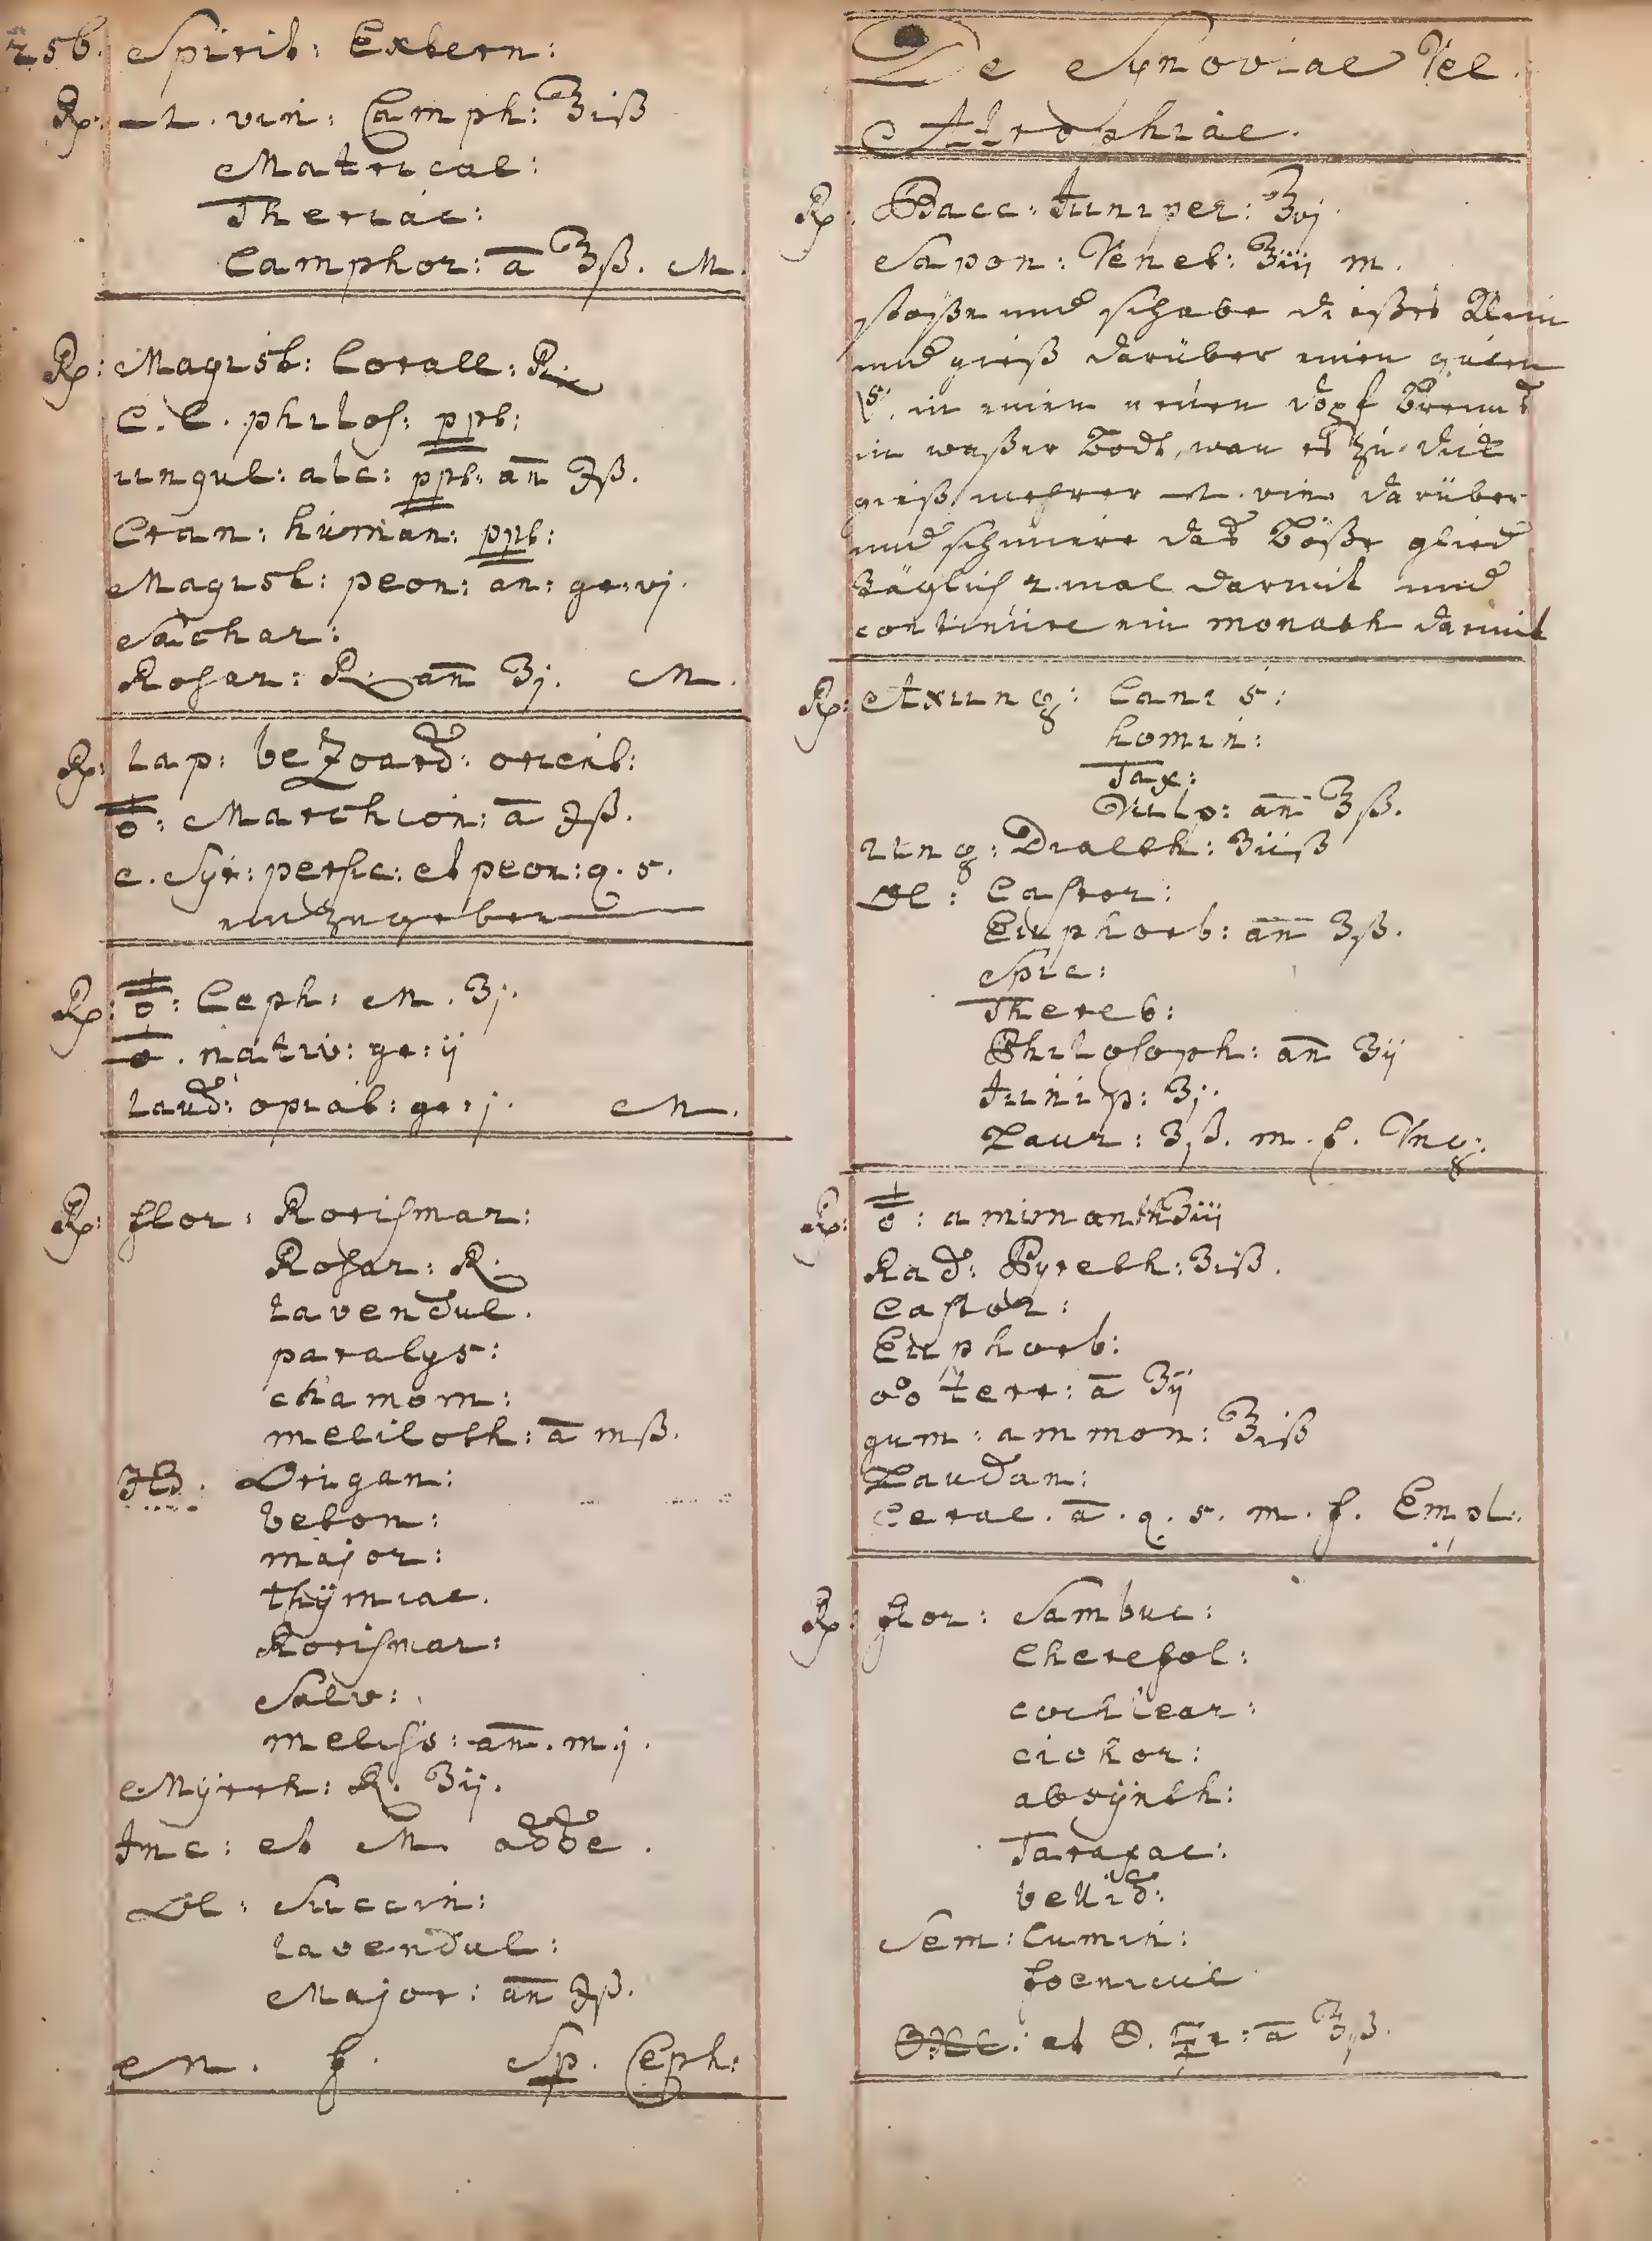 256. Spirit: Extern:
℞: vin: Camph: ℥iß
Matrical:
Theriac:
Camphor: ā ℥ß. M.
℞: Magist: Corall: R.
C. C. philos: ppt:
ungul: alc: ppt: an ʒß.
Cran: human: ppt:
Magist: peon: an: gr: vj.
Sachar:
Rosar: R. an ʒj. M.
℞: Lap: beZoard: orient:
Marchion: ā ʒß.
c. Syr: persic: et peon: q. s.
einzugeben
℞: Ceph: M. ʒj.
nativ: gr: ij
Laud: opiat: gr: j. M.
℞: flor: Rorismar:
Rosar: R.
Lavendul.
paralys:
chamom:
meliloth: ā mß.
Hb. Origan:
beton:
major:
thÿmiae.
Rorismar:
Salv:
meliss: an. m.j.
Mÿrrh: R. ʒij.
Inc: et M adde.
Ol: Succin:
Lavendul:
Major: an ʒß.
M. f. Sp. Ceph:
De Synoviae Vel
Atrophiae.
℞: Bacc: Juniper: ℥vj.
Sapon: Venet: ℥iij m.
stoße und schabe dießes klein
und gieß darüber einen guten
in einem neuen dopf
in waßer Bodt, wan es zu dick
gieß mehrer vin. darüber
und schmiere das böße glied
täglich 2. mal darmit und
continuire ein monath darmit
℞: Axung: Canis:
homin:
Tax:
Vulp: an ℥ß.
Ung: Dialth: ʒiiß
Ol: Castor:
Euphorb: an ʒß.
Spic:
Thereb:
Philosoph: an ʒij
Junip: ʒj.
Laur: ʒß. m. f. Ung:
℞: ℥iij
Rad: Pyreth: ʒiß.
Castor:
Euphorb:
terr: ā ʒij
gum: ammon: ℥iß
Laudan:
Cerae. ā. q. s. m. f. Empl:
℞: flor: Sambuc:
Cherefol:
cochlear:
cichor:
absÿnth:
Taraxac:
bellid:
Sem: Cumin:
foenicul
et ā ℥ß.